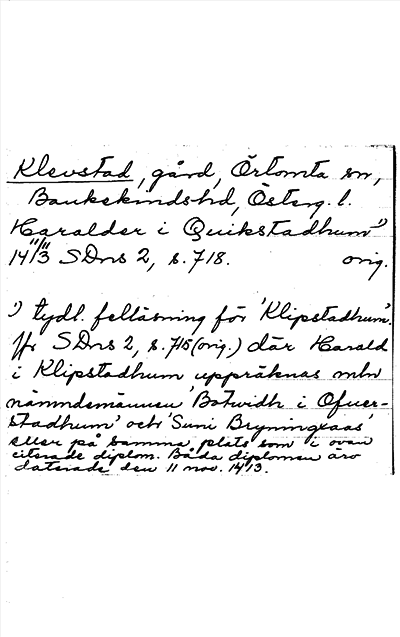 Klevstad, gård, Örtomta sn,
Bankekindshd, Österg. l.
Haralder i Quikstadhum 1)
14 11/11 13 SDns 2, s. 718. orig.
1) tydl. felläsning för 'Klipstadhum'.
Jfr SDns 2, s. 715 (orig.) där Harald
i Klipstadhum uppräknas mln
nämndemännen 'Botwidh i Ofuer-
stadhum' och 'Suni Bryningxaas'
eller på samma plats som i ovan
citerade diplom. Båda diplomen äro
daterade den 11 nov. 1413.